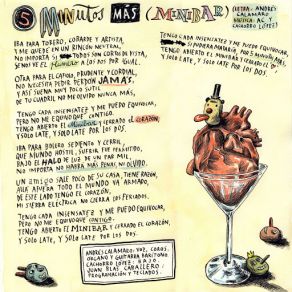 5 MINUTOS MÁS (MINIBAR)
(LETRA: ANDRÉS
CALAMARO
MÚSICA: AC Y
CACHORRO LÓPEZ)
IBA PARA TORERO, COBARDE Y GENIAL,
Y ME QUEDÉ EN UN RINCÓN NEUTRAL,
NO IMPORTA SI SON CORTOS DE VISTA,
SEÑOS VE EL PLUMERO A LOS DOS POR IGUAL.
OTRA PARA EL CAFOLA, PRUDENTE Y CORDIAL,
NO NECESITA PEDIR PERDÓN JAMÁS,
Y ASÍ SUENA MUY POCO SUTIL
DE TU CUADRIL NO ME OLVIDO NUNCA MÁS.
TENGO CADA INSENSATEZ Y ME PUEDO EQUIVOCAR,
PERO NO ME EQUIVOQUÉ CONTIGO.
TENGO ABIERTO EL MINIBAR Y CERRADO EL CORAZÓN,
Y SOLO LATE, Y SOLO LATE POR LOS DOS.
IBA PARA BOLERO SEDIENTO Y CERRIL,
QUE MUNDO HOSTIL, SUFRIR FUE PERMITIDO,
BAJO EL HALO DE LUZ DE UN PAR MIL
NO IMPORTA NO HABRÁ MÁS PENAS NI OLVIDO.
UN AMIGO SALE POCO DE SU CASA, TIENE RAZÓN,
ALLÁ AFUERA TODO EL MUNDO VA ARMADO,
DE ESTE LADO TENGO EL CORAZÓN,
MI SIERRA ELÉCTRICA NO CIERRA LOS FERIADOS.
TENGO CADA INSENSATEZ Y ME PUEDO EQUIVOCAR,
PERO NO ME EQUIVOQUÉ CONTIGO.
TENGO ABIERTO EL MINIBAR Y CERRADO EL CORAZÓN,
Y SOLO LATE, Y SOLO LATE POR LOS DOS.
ANDRÉS CALAMARO: VOZ, COROS,
ÓRGANO Y GUITARRA BARÍTONO.
CACHORRO LÓPEZ: BAJO.
JUAN BLAS CABALLERO:
PROGRAMACIÓN Y TECLADOS.
TENGO CADA INSENSATEZ Y ME PUEDO EQUIVOCAR,
TENGO ABIERTO EL MINIBAR Y CERRADO EL CORAZÓN,
Y SOLO LATE, Y SOLO LATE POR LOS DOS.